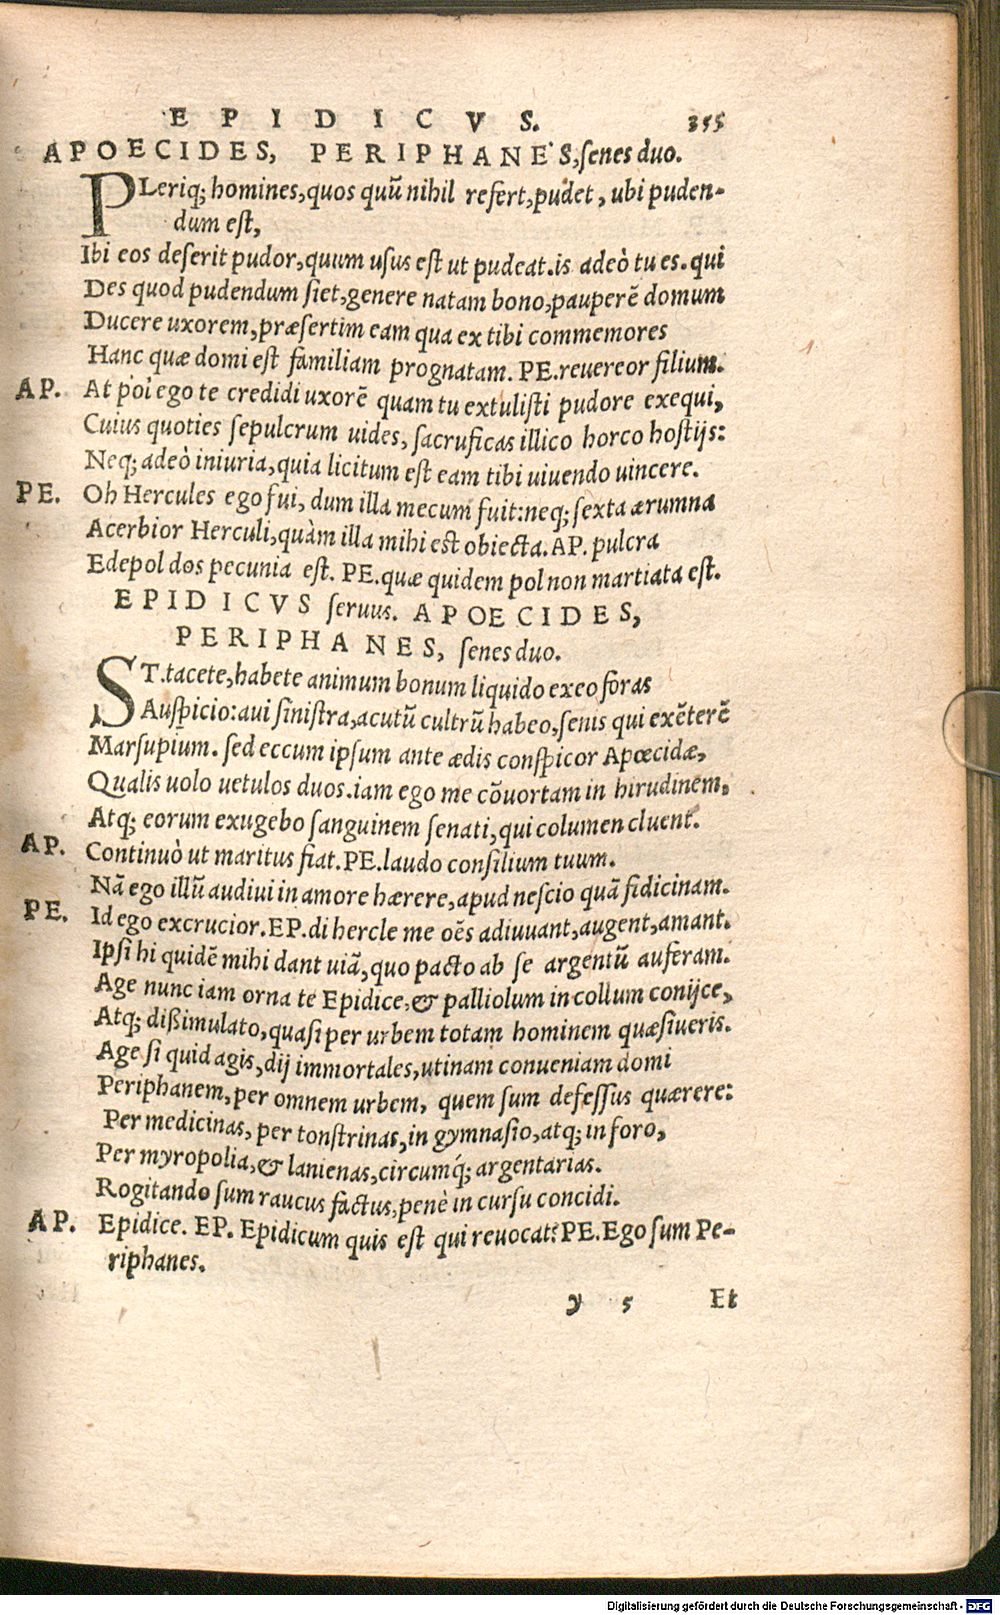 EPIDICVS. 355
APOECIDES, PERIPHANES, ſenes duo.
PLeriq; homines, quos quũ nihil refert, pudet, ubi puden-
dum eſt,
Ibi eos deſerit pudor, quum uſus eſt ut pudeat. is adeò tu es. qui
Des quod pudendum ſiet, genere natam bono, pauperẽ domum
Ducere uxorem, præſertim eam qua ex tibi commemores
Hanc quæ domi eſt familiam prognatam. PE. reuereor filium.
AP. At pol ego te credidi uxorẽ quam tu extuliſti pudore exequi,
Cuius quoties ſepulcrum uides, ſacruficas illico horco hoſtijs:
Neq; adeò iniuria, quia licitum eſt eam tibi uiuendo uincere.
PE. Oh Hercules ego fui, dum illa mecum fuit: neq; ſexta ærumna
Acerbior Herculi, quàm illa mihi est obiecta. AP. pulcra
Edepol dos pecunia eſt. PE. quæ quidem pol non martiata eſt.
EPIDICVS ſeruus. APOECIDES,
PERIPHANES, ſenes duo.
ST. tacete, habete animum bonum liquido exeo foras
Auſpicio: aui ſiniſtra, acutũ cultrũ habeo, ſenis qui exẽterẽ
Marſupium. ſed eccum ipſum ante ædis conſpicor Apœcidæ,
Qualis uolo uetulos duos. iam ego me cõuortam in hirudinem,
Atq; eorum exugebo ſanguinem ſenati, qui columen cluent.
AP. Continuò ut maritus fiat. PE. laudo conſilium tuum.
Nã ego illũ audiui in amore hærere, apud neſcio quã fidicinam.
PE. Id ego excrucior. EP. di hercle me oẽs adiuuant, augent, amant.
Ipſi hi quidẽ mihi dant uiã, quo pacto ab ſe argentũ auferam.
Age nunc iam orna te Epidice, & palliolum in collum conijce,
Atq; dißimulato, quaſi per urbem totam hominem quæſiueris.
Age ſi quid agis, dij immortales, utinam conueniam domi
Periphanem, per omnem urbem, quem ſum defeſſus quærere:
Per medicinas, per tonſtrinas, in gymnaſio, atq; in foro,
Per myropolia, & lanienas, circumq́; argentarias.
Rogitando ſum raucus factus, penè in curſu concidi.
AP. Epidice. EP. Epidicum quis eſt qui reuocat? PE. Ego ſum Pe-
riphanes.
y 5 Et
Digitalisierung gefördert durch die Deutsche Forschungsgemeinschaft - DFG